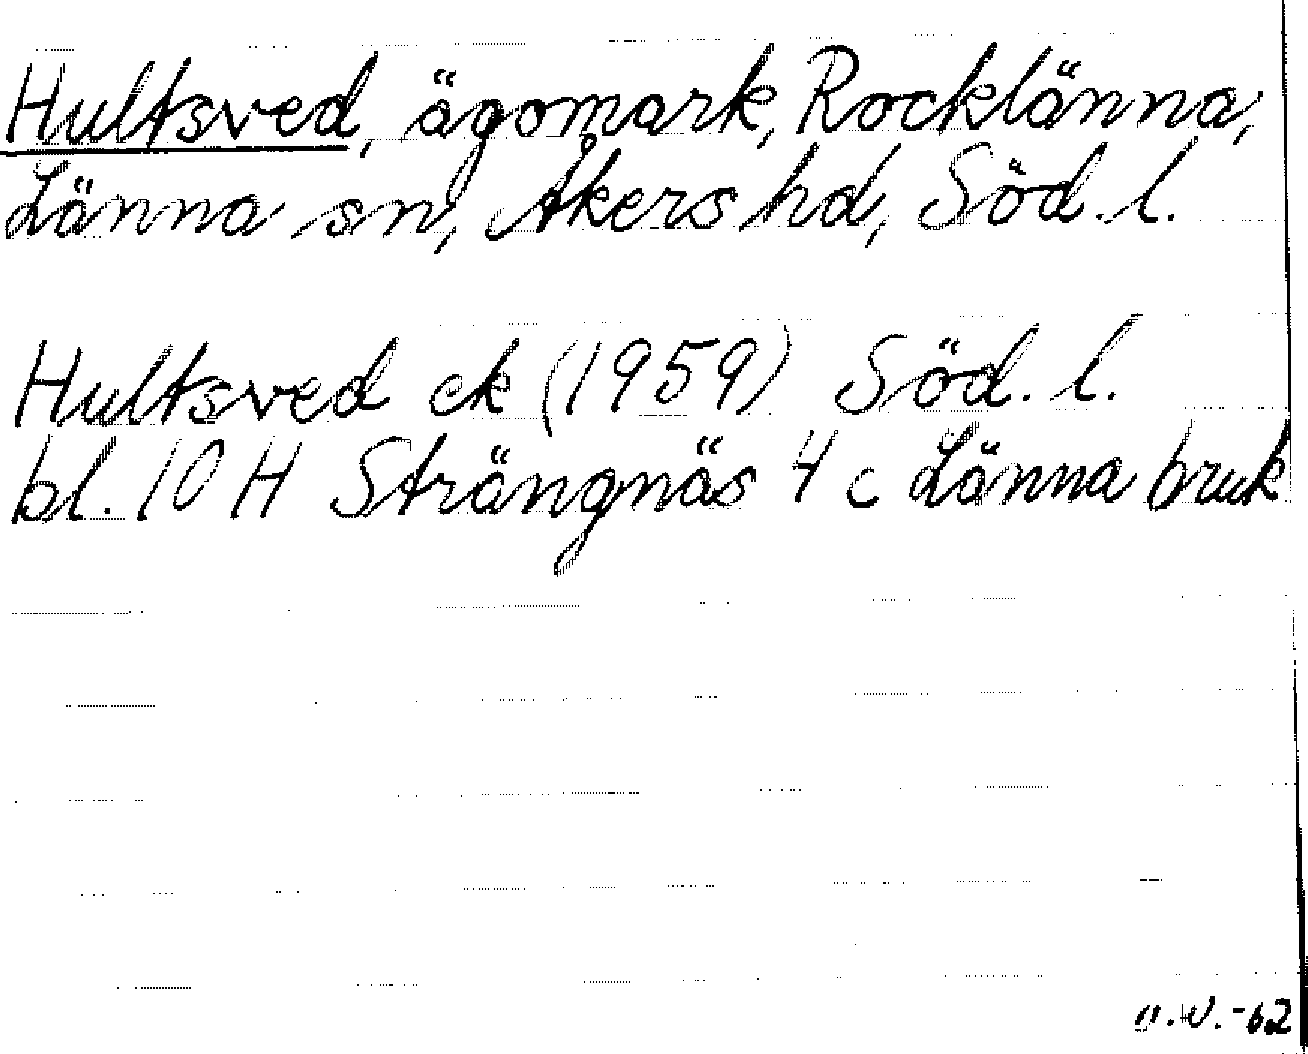 Hultsved, ägomark, Rocklänna,
Länna sn, Åkers hd, Söd. l.
Hultsved ek (1959) Söd. l.
bl. 10 H Strängnäs 4 c Länna bruk
-62